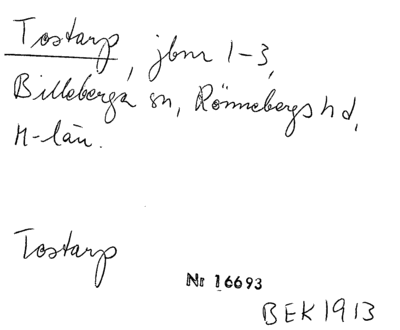 Tostarp, jbnr 1-3,
Billeberga sn, Rönnebergs hd,
M-län.
Tostarp
Nr 16693
BEK 1913